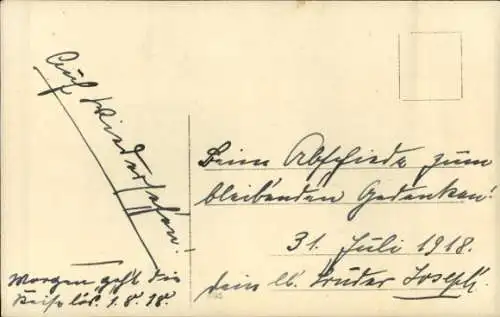 Auf Wiedersehen!
Morgen geht die
Reise los. 1.8.18.
Beim Abschiede zum
bleibenden Gedenken!
31. Juli 1918.
dein Bruder Joseph.